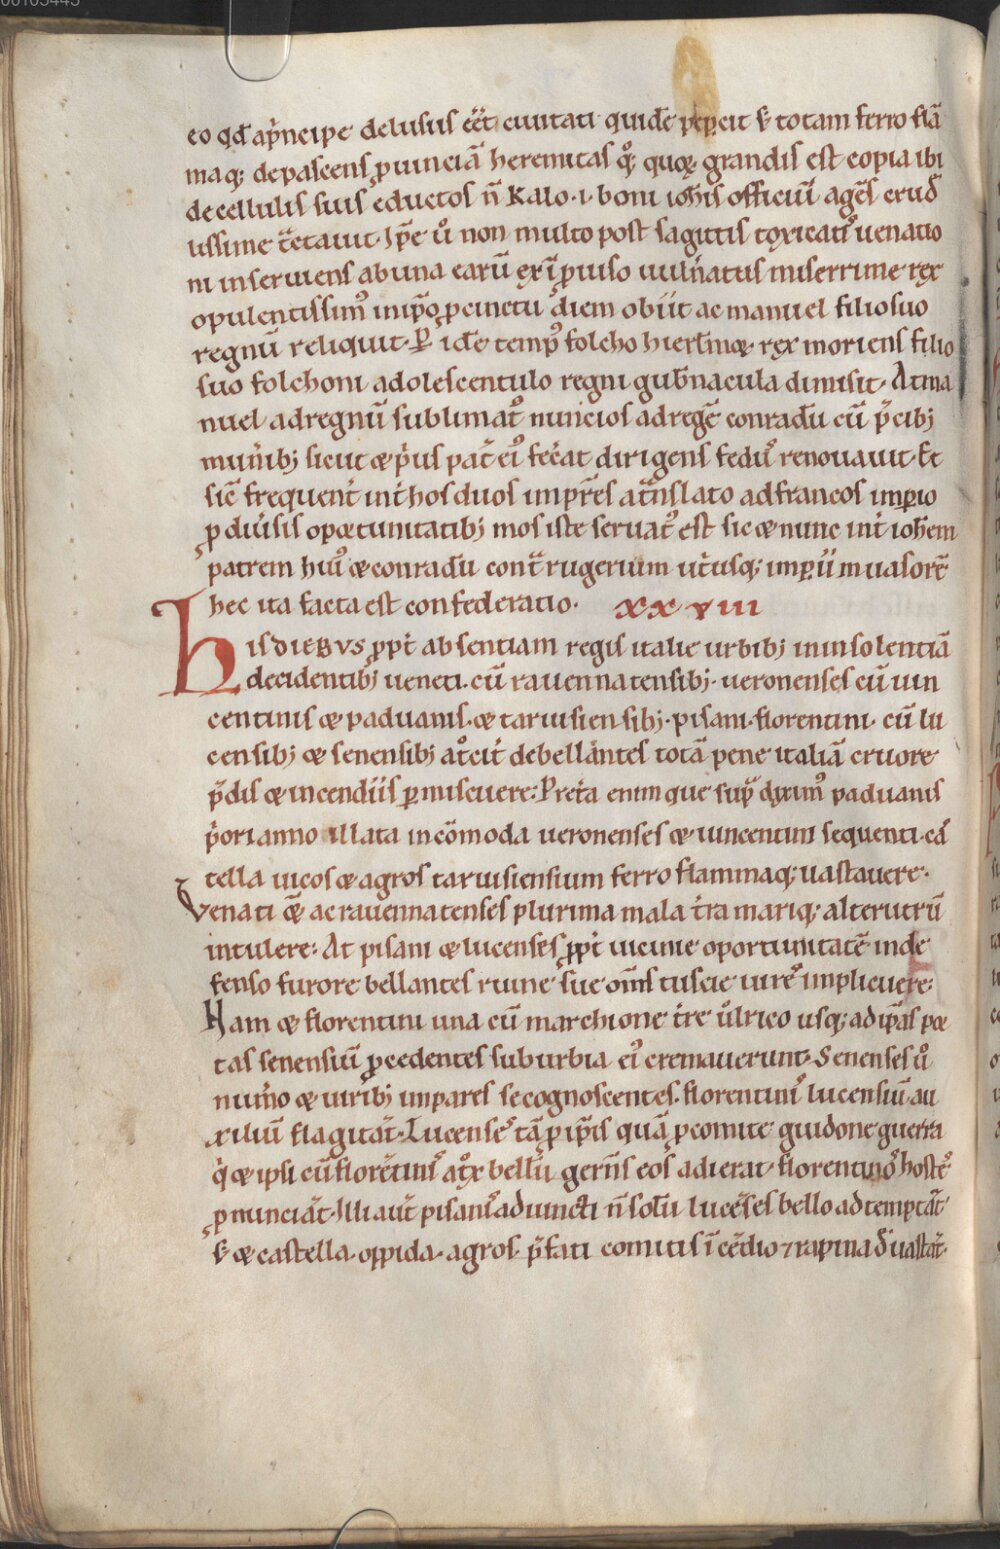 00103443
eo qđ ap̄ncipe delusus eēt ciuitati quidē pepcit s; totam ferro flā
maq; depascens ꝓuinciā heremitas qꝫ quoꝝ grandis est copia ibi
de cellulis suis eductos n̄ kalo ·i· boni ioħis officiū agēs crud
lissime tc̄tauit· Ip̄e u̾o non multo post sagittis toxicatꝰ uenatio
ni inseruiens ab una earū ex īprouiso uuln̄atus miserrime rex
opulentissimꝰ in ip̄o ꝓcinctu diem obiit ac manuel filio suo
regnū reliquit· Ꝑ idē tempꝰ folcho hierl̄imoꝝ rex moriens filio
suo folchoni adolescentulo regni gub̄nacula dimisit· At ma
nuel ad regnū sublimatꝰ nuncios ad regē conradū cū p̄cibꝫ
mun̄ibꝫ sicut & p̄us pat̄ eiꝰ fec̄at dirigens fedꝰ renouauit· Et
sic̄ frequent̄ int̄ hos duos imp̄res a tn̄slato ad francos imperio
ꝓ diu̾sis oportunitatibꝫ mos iste seruatꝰ est sic & nunc int̄ ioħem
patrem huiꝰ & conradū contͣ rugerium utͥusq; imꝑii inuasorē
hec ita facta est confederatio· xx viii
His diebus ꝓpt̄ absentiam regis italie urbibꝫ in insolentiā
decidentibꝫ ueneti· cū rauennatensibꝫ· ueronenses cū uin
centinis & paduanis· & taruisiensibꝫ· pisani· florentini· cū lu
censibꝫ & senensibꝫ atͦcit̄ debellantes totā pene italiā cruore
p̄dis & incendiis ꝑmiscuere: Pret̄a enim que supͣ diximꝰ paduanis
p̄ori anno illata incōmoda ueronenses & uincentini sequenti· cā
tella uicos & agros taruisiensium ferro flammaq; uastauere·
Venati q̄ ac rauennatenses plurima mala tr̄a mariq; alterutrū
intulere: At pisani & lucenses ꝓpt̄ uicinie oportunitatē inde
fenso furore bellantes ruine sue om̄s tuscie uireꝰ implicuere:
Nam & florentini una cū marchione tr̄e ůlrico usq; ad ip̄as por
tas senensiū ꝓcedentes suburbia eiꝰ cremauerunt· Senenses u̾o
num̄o & uirībꝫ impares se cognoscentes· florentiniꝰ lucensiū au
xiliū flagitāt· Lucenseꝰ tā ꝓ ip̄is quā ꝓ comite guidone guerra
qͥ & ipsi cū florētiniꝰ atͦx bellū gern̄s eos adierat· florentinoꝰ hosteꝰ
ꝓnunciāt· Illi aut̄ pisaniꝰ adiuncti n̄ solū lucēses bello adtemptāt·
s; & castella· oppida· agros· p̄fati comitis īcēdio ⁊ rapina d̄uastāt·